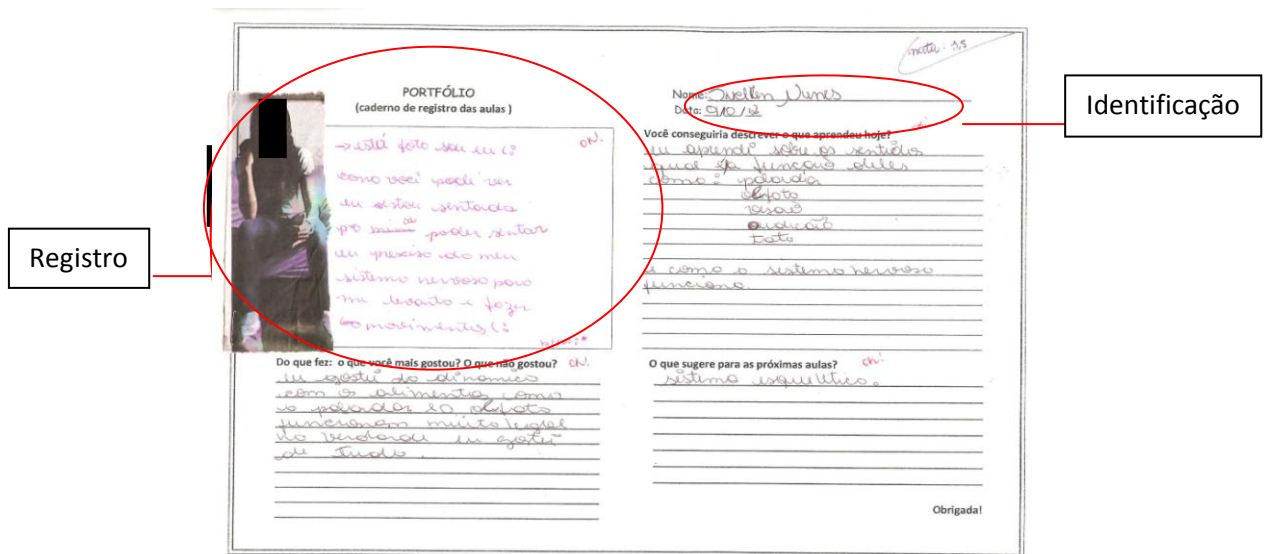 nota: 9,5
PORTFÓLIO
(caderno de registro das aulas )
→ está foto sou eu (:
como você pode ver
eu estou sentada
po poder sentar
eu preciso do meu
sistema nervoso para
mi levanto e fazer
movimentos (:
OK!
Nome: Suellen Nunes
Data: 9/10/12
Você conseguiria descrever o que aprendeu hoje?
OK!
eu aprendi sobre os sentidos
qual é a função deles
como: paladar
olfato
visaõ
audição
tato
e como o sistema nervoso
funciona.
Registro
Identificação
Do que fez: o que você mais gostou? O que não gostou? OK!
eu gostei da dinamica
com os alimentos como
o paladar e o olfato
funcionam muito legal
na verdade eu gostei
de Tudo.
O que sugere para as próximas aulas? OK!
sistema esquelitico.
Obrigada!